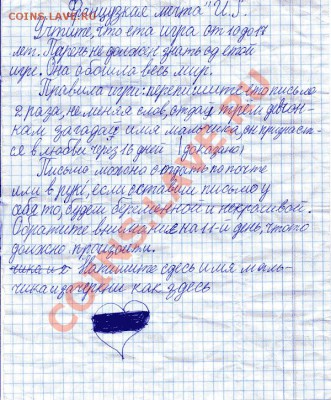 "Французкая мечта" И.Г.
Учтите, что ета игра от 10 до 17
лет. Парень не должен знать о д етой
игре. Она обошла весь мир.
Правила игры: перепишите ето письмо
2 раза, не меняя слов, отдай трем девчон-
кам загадай имя мальчика, он признает-
се в любви чрез 16 дней (доказано)
Письмо можно отдать по почте
или в руки, если оставиш письмо у
себя то, будеш беременной и некрасивой.
Обратите внимание на 11-й день, что то
должно произойти.
Напишите сдесь имя маль-
чика и зачеркни как здесь
COINS.LAVE.RU
COINS.LAVE.RU